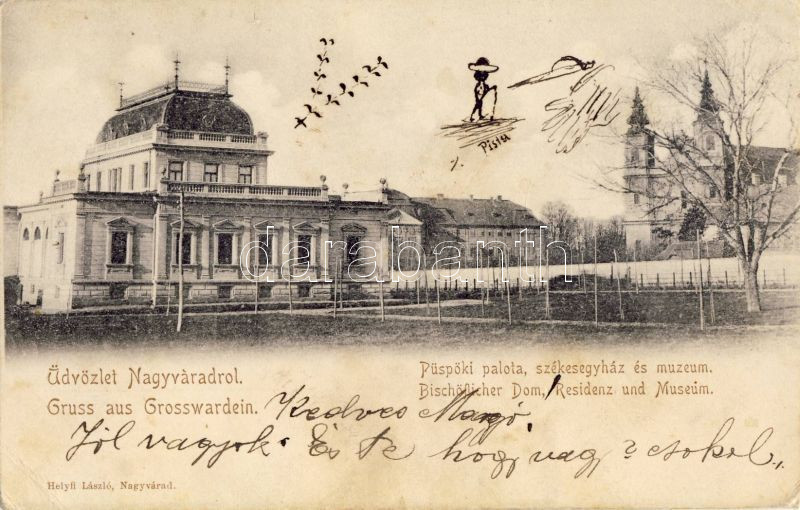 Pista
darabanth
Üdvözlet Nagyvàradrol.
Gruss aus Grosswardein.
Püspöki palota, székesegyház és muzeum.
Bischöflicher Dom, Residenz und Museum.
Kedves Margó!
Jól vagyok. És te hogy vagy? csokol.,
Helyfi László, Nagyvárad.